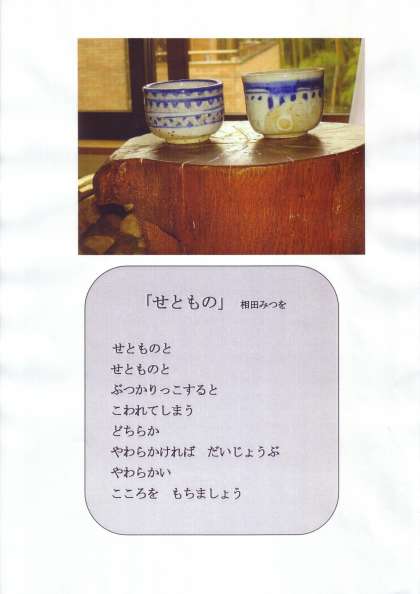 「せともの」 相田みつを
せとものと
せとものと
ぶつかりっこすると
こわれてしまう
どちらか
やわらかければ だいじょうぶ
やわらかい
こころを もちましょう